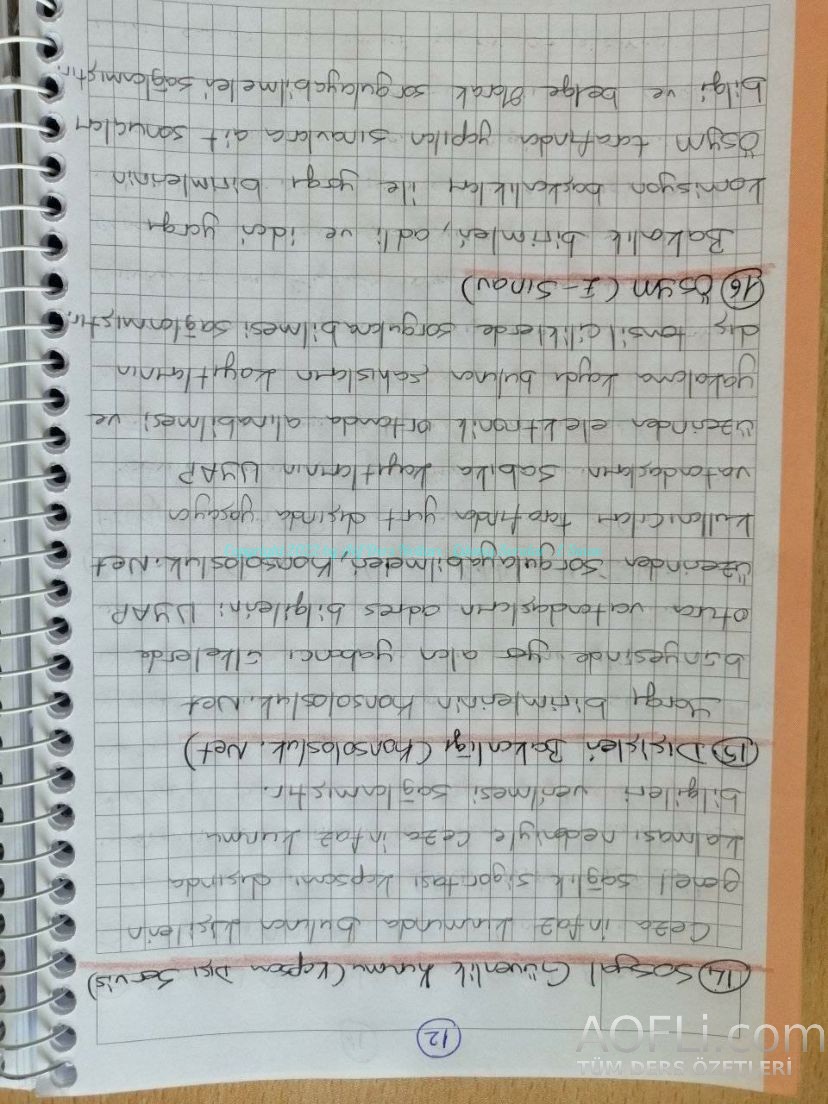 12
14 Sosyal Güvenlik Kurumu (Kapsam Dışı Servis)
Ceza infaz kurumunda bulunan kişilerin
genel sağlık sigortası kapsamı dışında
kalması nedeniyle ceza infaz kurumu
bilgileri verilmesi sağlanmıştır.
15 Dışişleri Bakanlığı (Konsolosluk.Net)
Yargı birimlerinin Konsolosluk.Net
bünyesinde yer alan yabancı ülkelerde
oturan vatandaşların adres bilgilerini UYAP
üzerinden sorgulayabilmeleri, Konsolosluk.Net
kullanıcıları tarafından yurt dışında yaşayan
vatandaşların sabıka kayıtlarının UYAP
üzerinden elektronik ortamda alınabilmesi ve
yakalama kaydı bulunan şahısların kayıtlarının
dış temsilciliklerde sorgulanabilmesi sağlanmıştır.
16 ÖSYM (E-Sınav)
Bakanlık birimleri, adli ve idari yargı
komisyon başkanlıkları ile yargı birimlerinin
ÖSYM tarafından yapılan sınavlara ait sonuçları
bilgi ve belge olarak sorgulayabilmeleri sağlanmıştır.
AOFLi.com
TÜM DERS ÖZETLERİ